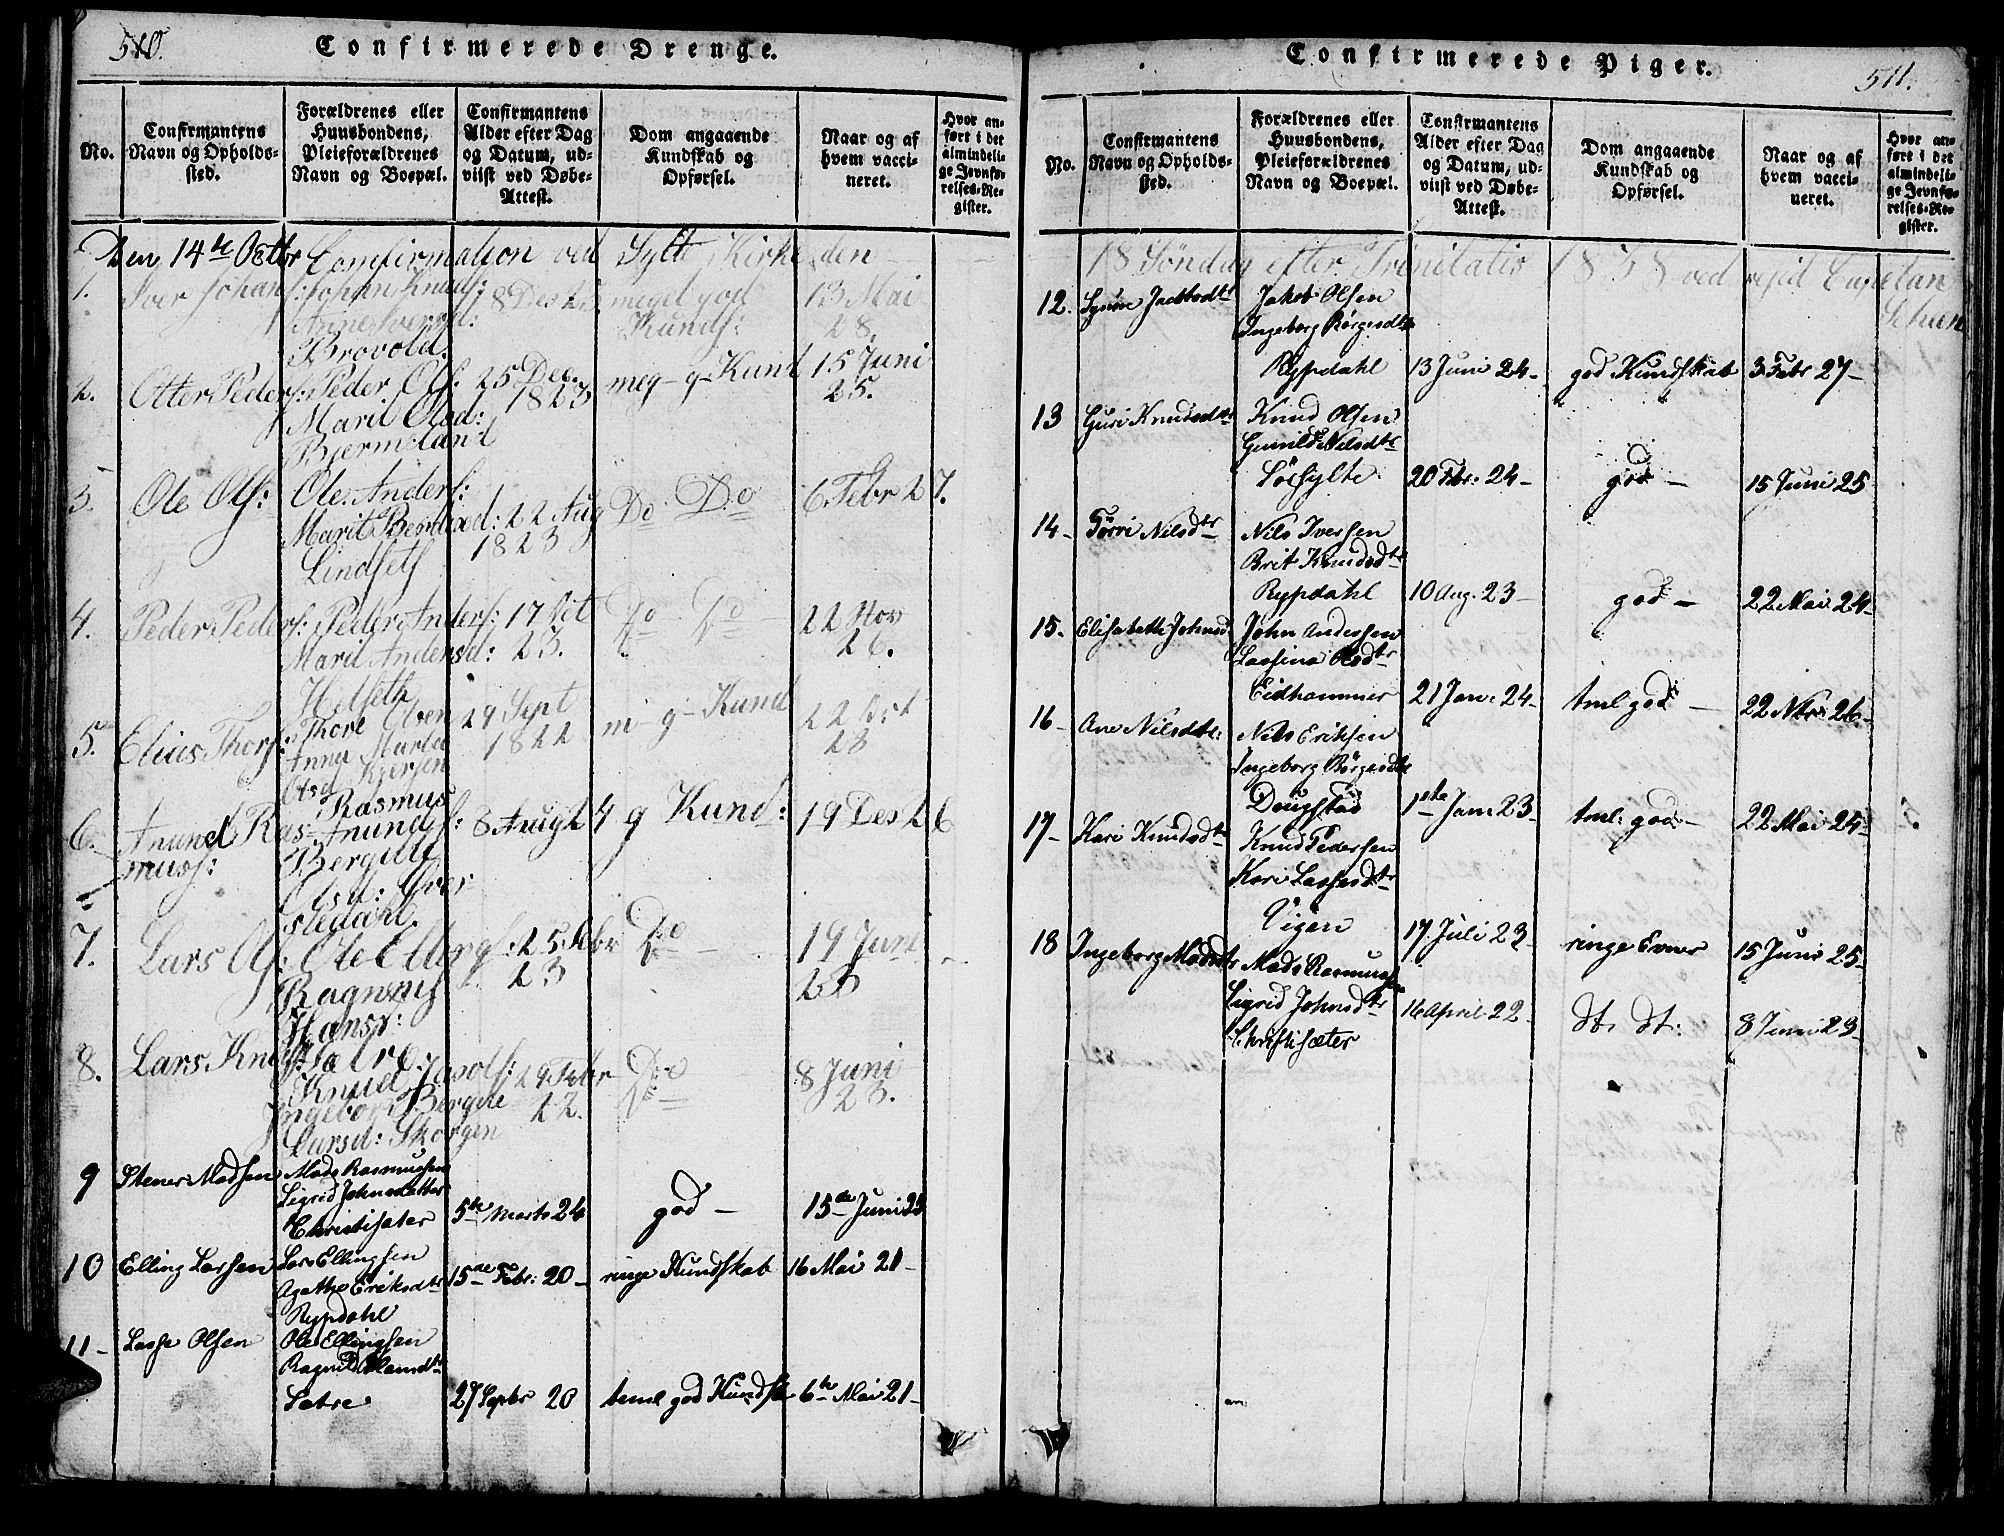 510.
Confirmerede Drenge.
No.
Confirmantens
Navn og Opholds-
sted.
Forældrenes eller
Huusbondens,
Pleieforældrenes
Navn og Boepæl.
Confirmantens
Alder efter Dag
og Datum, ud-
viist ved Døbe-
Attest.
Dom angaaende
Kundskab og
Opførsel.
Naar og af
hvem vacci-
neret.
Hvor an-
ført i det
almindeli-
ge Jevnfø-
relses-Re-
gister.
Den 14de Octbr Confirmation ved Sylte Kirke den
1. Iver Johans: Johan Knuds: 8 Des 23 meget god 13 Mai
Kunds: 28.
Brovold
2. Otter Peders: Peder Ols: 25 Dec. meg- g- Kund 15 Juni
Marit Olsd: 1823 25.
3. Ole Ols: Ole Anders: 22 Aug Do Do 6 Febr 27.
1823
Lindseth
4. Peder Peders: Peder Anders: 17 Oct Do Do 22 Nov
Marit Andersd: 23. 26.
5. Elias Thors: Thore Olsen 29 Sept m- g- Kund 22 Oct
1822 23
6. Anund Ras- Rasmus
muss: Anunds: 8 Aug 24 g Kund: 19 Des 26
7. Lars Ols: Ole Ellings: 25 Febr Do 19 Juni
23 23
8. Lars Knuds: Knud 29 Febr Do 8 Juni
Ingeborg 22. 23.
Larsd: Skorgen
9 Stener Madsen Mads Rasmussen
Sigrid Johnsdatter
Christisæter 5te Marts 24 god - 15de Juni 25
10 Elling Larsen Lars Ellingsen
Agathe Eriksdtr 15ne Febr: 20 - ringe Kundskab 16 Mai 21 -
Rypdahl
11 - Lasse Olsen Ole Ellingsen
Sætre 27 Septbr 20 teml god Kundsk 6te Mai 21 -
Confirmerede Piger.
511.
No.
Confirmantens
Navn og Opholds-
sted.
Forældrenes eller
Huusbondens,
Pleieforældrenes
Navn og Boepæl.
Confirmantens
Alder efter Dag
og Datum, ud-
viist ved Døbe-
Attest.
Dom angaaende
Kundskab og
Opførsel.
Naar og af
hvem vacci-
neret.
Hvor an-
ført i det
almindeli-
ge Jevnfø-
relses-Re-
gister.
18 Søndag efter Trinitatis 1838 ved resid Capelan
12. Synøve Jacobsdtr Jakob Olsen
Ingeborg Børgesdtr
Rypdahl 13 Juni 24 - god Kundskab 3 Febr 27 -
13 Guri Knudsdtr Knud Olsen
Gunild Nilsdtr
20 Febr: 24 - god - 15 Juni 25
14 - Nilsdtr Nils Iversen
Brit Knudsdtr
Rypdahl 10 Aug. 23 - god - 22 Mai 24 -
15. Elisabeth Johnsd John Andersen
Lassina Olsdtr
Eidhammer 21 Jan: 24 - tml god - 22 Nbr: 26 -
16 - Ane Nilsdtr: Nils Eriksen
Ingeborg Børgesdtr
Dougstad 1ste Jan: 23 - tml: god - 22 Mai 24 -
17 - Kari Knudsdtr Knud Pedersen
Kari Lassesdtr
Vigen 17 Juli 23 - ringe Evner 15 Juni 25 -
18 Ingeborg Madsdtr Mads Rasmussen
Sigrid Johnsdtr 16 April 22 - dt. dt: 8 Juni 23 -
Christisæter